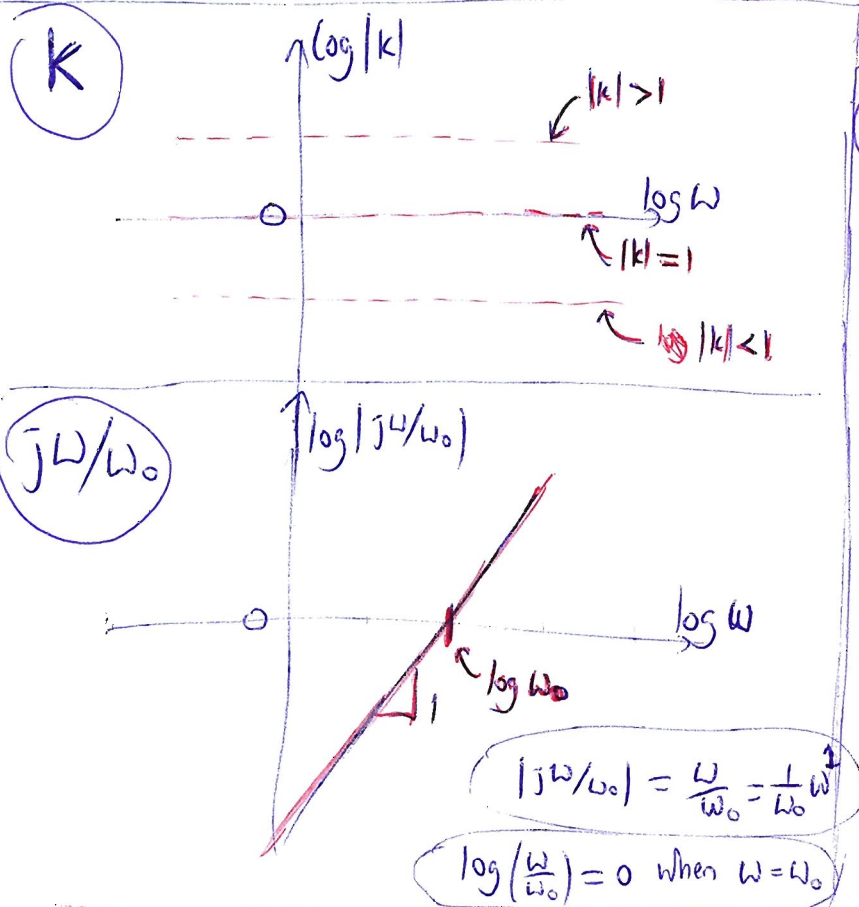 K
log|k|
|k|>1
log ω
0
|k|=1
log |k|<1
jω/ω₀
log|jω/ω₀|
0
log ω
log ω₀
1
|jω/ω₀| = ω/ω₀ = 1/ω₀ ω¹
log(ω/ω₀) = 0 when ω = ω₀